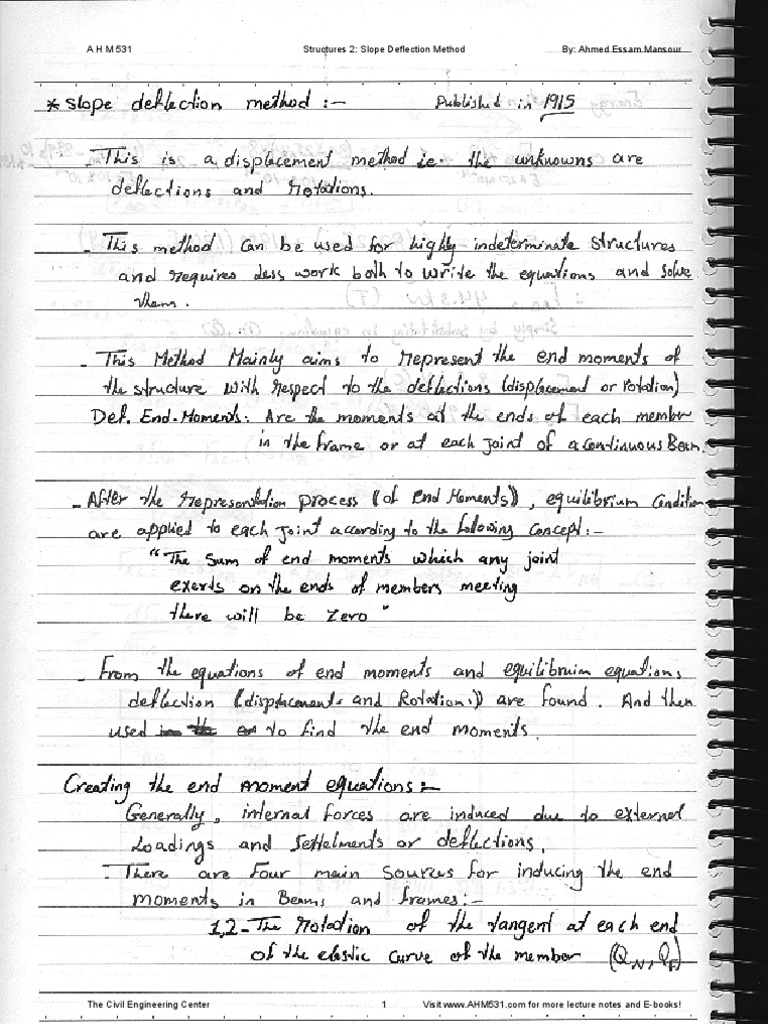 A H M 531 Structures 2: Slope Deflection Method By: Ahmed Essam Mansour
* Slope deflection method :- Published in 1915
- This is a displacement method ie. the unknowns are
deflections and rotations.
- This method can be used for highly indeterminate structures
and requires less work both to write the equations and solve
them.
- This Method Mainly aims to represent the end moments of
the structure with respect to the deflections (displacement or rotation)
Def. End-Moments: Are the moments at the ends of each member
in the frame or at each joint of a continuous Beam.
- After the representation process ((of End Moments)), equilibrium Condition
are applied to each joint according to the following concept:-
"The sum of end moments which any joint
exerts on the ends of members meeting
there will be zero"
- From the equations of end moments and equilibruim equations,
deflection ((displacements and Rotations)) are found. And then
used to find the end moments.
Creating the end moment equations:-
Generally, internal forces are induced due to external
Loadings and settelments or deflections.
- There are four main sources for inducing the end
moments in Beams and frames:-
1,2- The rotation of the tangent at each end
of the elastic curve of the member (θN, θF)
The Civil Engineering Center 1 Visit www.AHM531.com for more lecture notes and E-books!